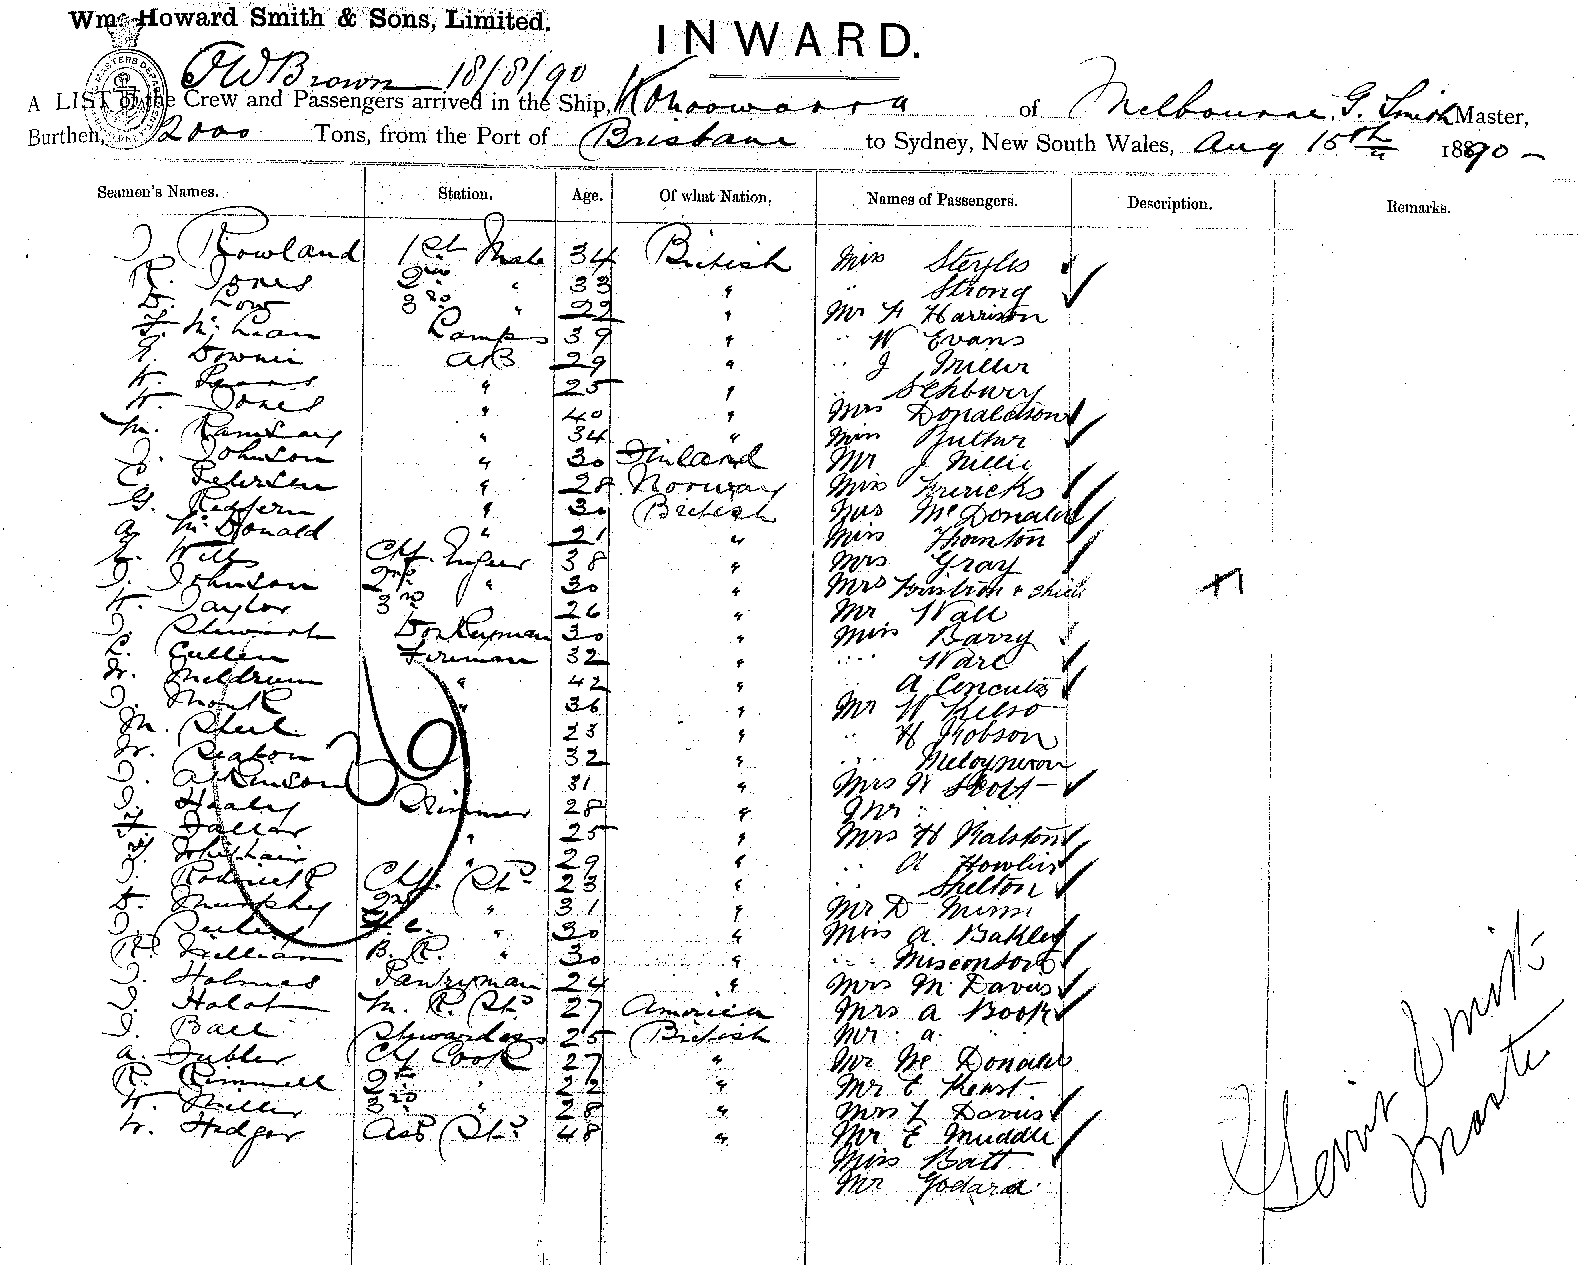 Wm. Howard Smith & Sons, Limited.
INWARD.
MASTERS DEPA
JW Brown 18/8/90
A LIST of the Crew and Passengers arrived in the Ship, Konoowarra of Melbourne, G. Smith Master,
Burthen, 2000 Tons, from the Port of Brisbane to Sydney, New South Wales, Aug 15th 1890
Seamen's Names. Station. Age. Of what Nation. Names of Passengers. Description. Remarks.
J. Rowland 1st Mate 34 British Miss
R. Jones 2nd " 33 " " Strong
D. Low 3rd " 22 " Mr F Harrison
F. McLean Lamps 39 " " W Evans
Downie AB 29 " " J Miller
W. " 25 " "
W. Jones " 40 " Mrs Donaldson
M. Ramsay " 34 " Miss Butler
J. Johnson " 30 Finland Mr J
C. Petersen " 28 Norway Miss
G. Redfern " 30 British Mrs McDonald
A. McDonald " 21 " Miss Thornton
Wills Chf. Engeer 38 " Mrs Gray
J. Johnson 2nd " 30 " Mrs & child
W. Taylor 3rd 26 " Mr Wall
J. Stewart Donkeyman 30 " Miss Barry
L. Cullen Fireman 32 " " Ware
W. Meldrum " 42 " A
J. Monk " 36 " Mr W Kelso
M. Steel 23 " " H Robson
W. Seaton 32 " "
J. Atkinson 31 " Mrs W Scott
J. Healy Trimmer 28 " Mr "
F. " 25 " Mrs H Ralston
" 29 " " A
J. Roderick Chf. Std 23 " " Shelton
D. Murphy 2nd " 31 " Mr D
J. F.C. " 30 " Miss A.
R. William B.R. " 30 " "
J. Holmes Pantryman 24 " Mrs M Davis
J. M.R. Std 27 America Mrs A Book
J. Ball Stewardess 25 British Mr A.
A. Chf Cook 27 " Mr McDonald
R. Rimmell 2nd " 22 " Mr E Keast
W. Miller 3rd " 28 " Mrs L Davis
W. Hedger Ass Std 48 " Mr E Muddle
Miss Batt
Mr Godard
Gerrit Smith
Master